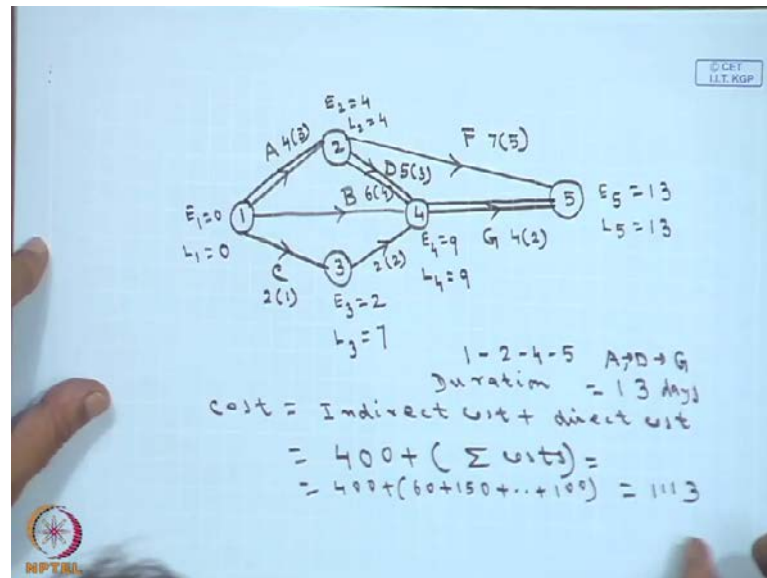 © CET
I.I.T. KGP
E₂=4
L₂=4
A 4(3)
F 7(5)
2
D 5(3)
B 6(4)
E₁=0
1
4
5
E₅=13
L₁=0
G 4(2)
L₅=13
C
2(1)
3
2(2)
E₄=9
L₄=9
E₃=2
L₃=7
1-2-4-5 A→D→G
Duration = 13 days
Cost = Indirect cost + direct cost
= 400+(Σ costs)=
= 400+(60+150+..+100) = 1113
NPTEL